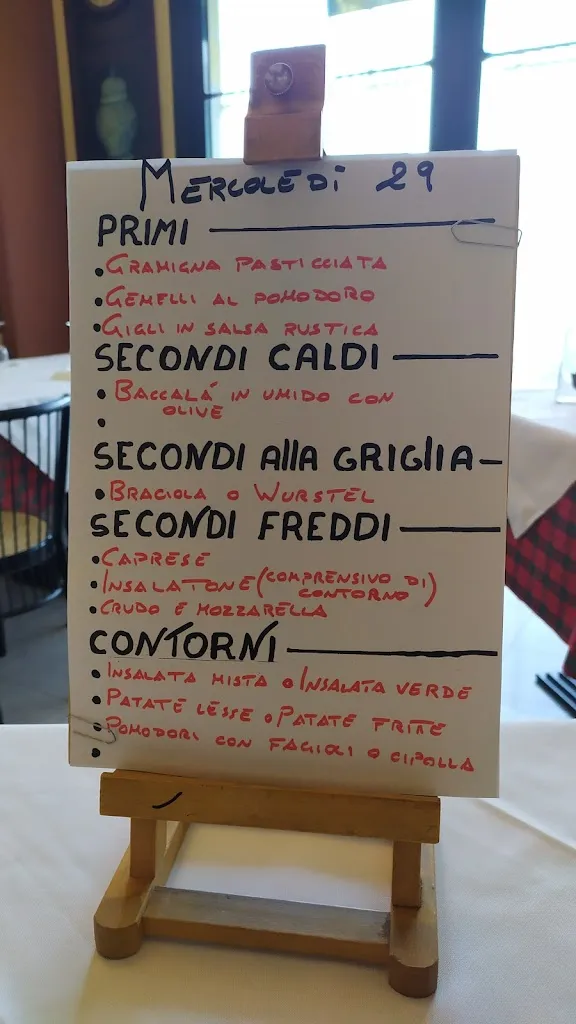 MERCOLEDì 29
PRIMI
• GRAMIGNA PASTICCIATA
• GEMELLI AL POMODORO
• GIGLI IN SALSA RUSTICA
SECONDI CALDI
• BACCALA' IN UMIDO CON
OLIVE
•
SECONDI AllA GRIGlIA
• BRACIOLA O WURSTEL
SECONDI FREDDI
• CAPRESE
• INSALATONE (COMPRENSIVO DI
CONTORNO)
• CRUDO E MOZZARELLA
CONTORNI
• INSALATA MISTA O INSALATA VERDE
• PATATE LESSE O PATATE FRITE
• POMODORI CON FAGIOLI O CIPOLLA
•